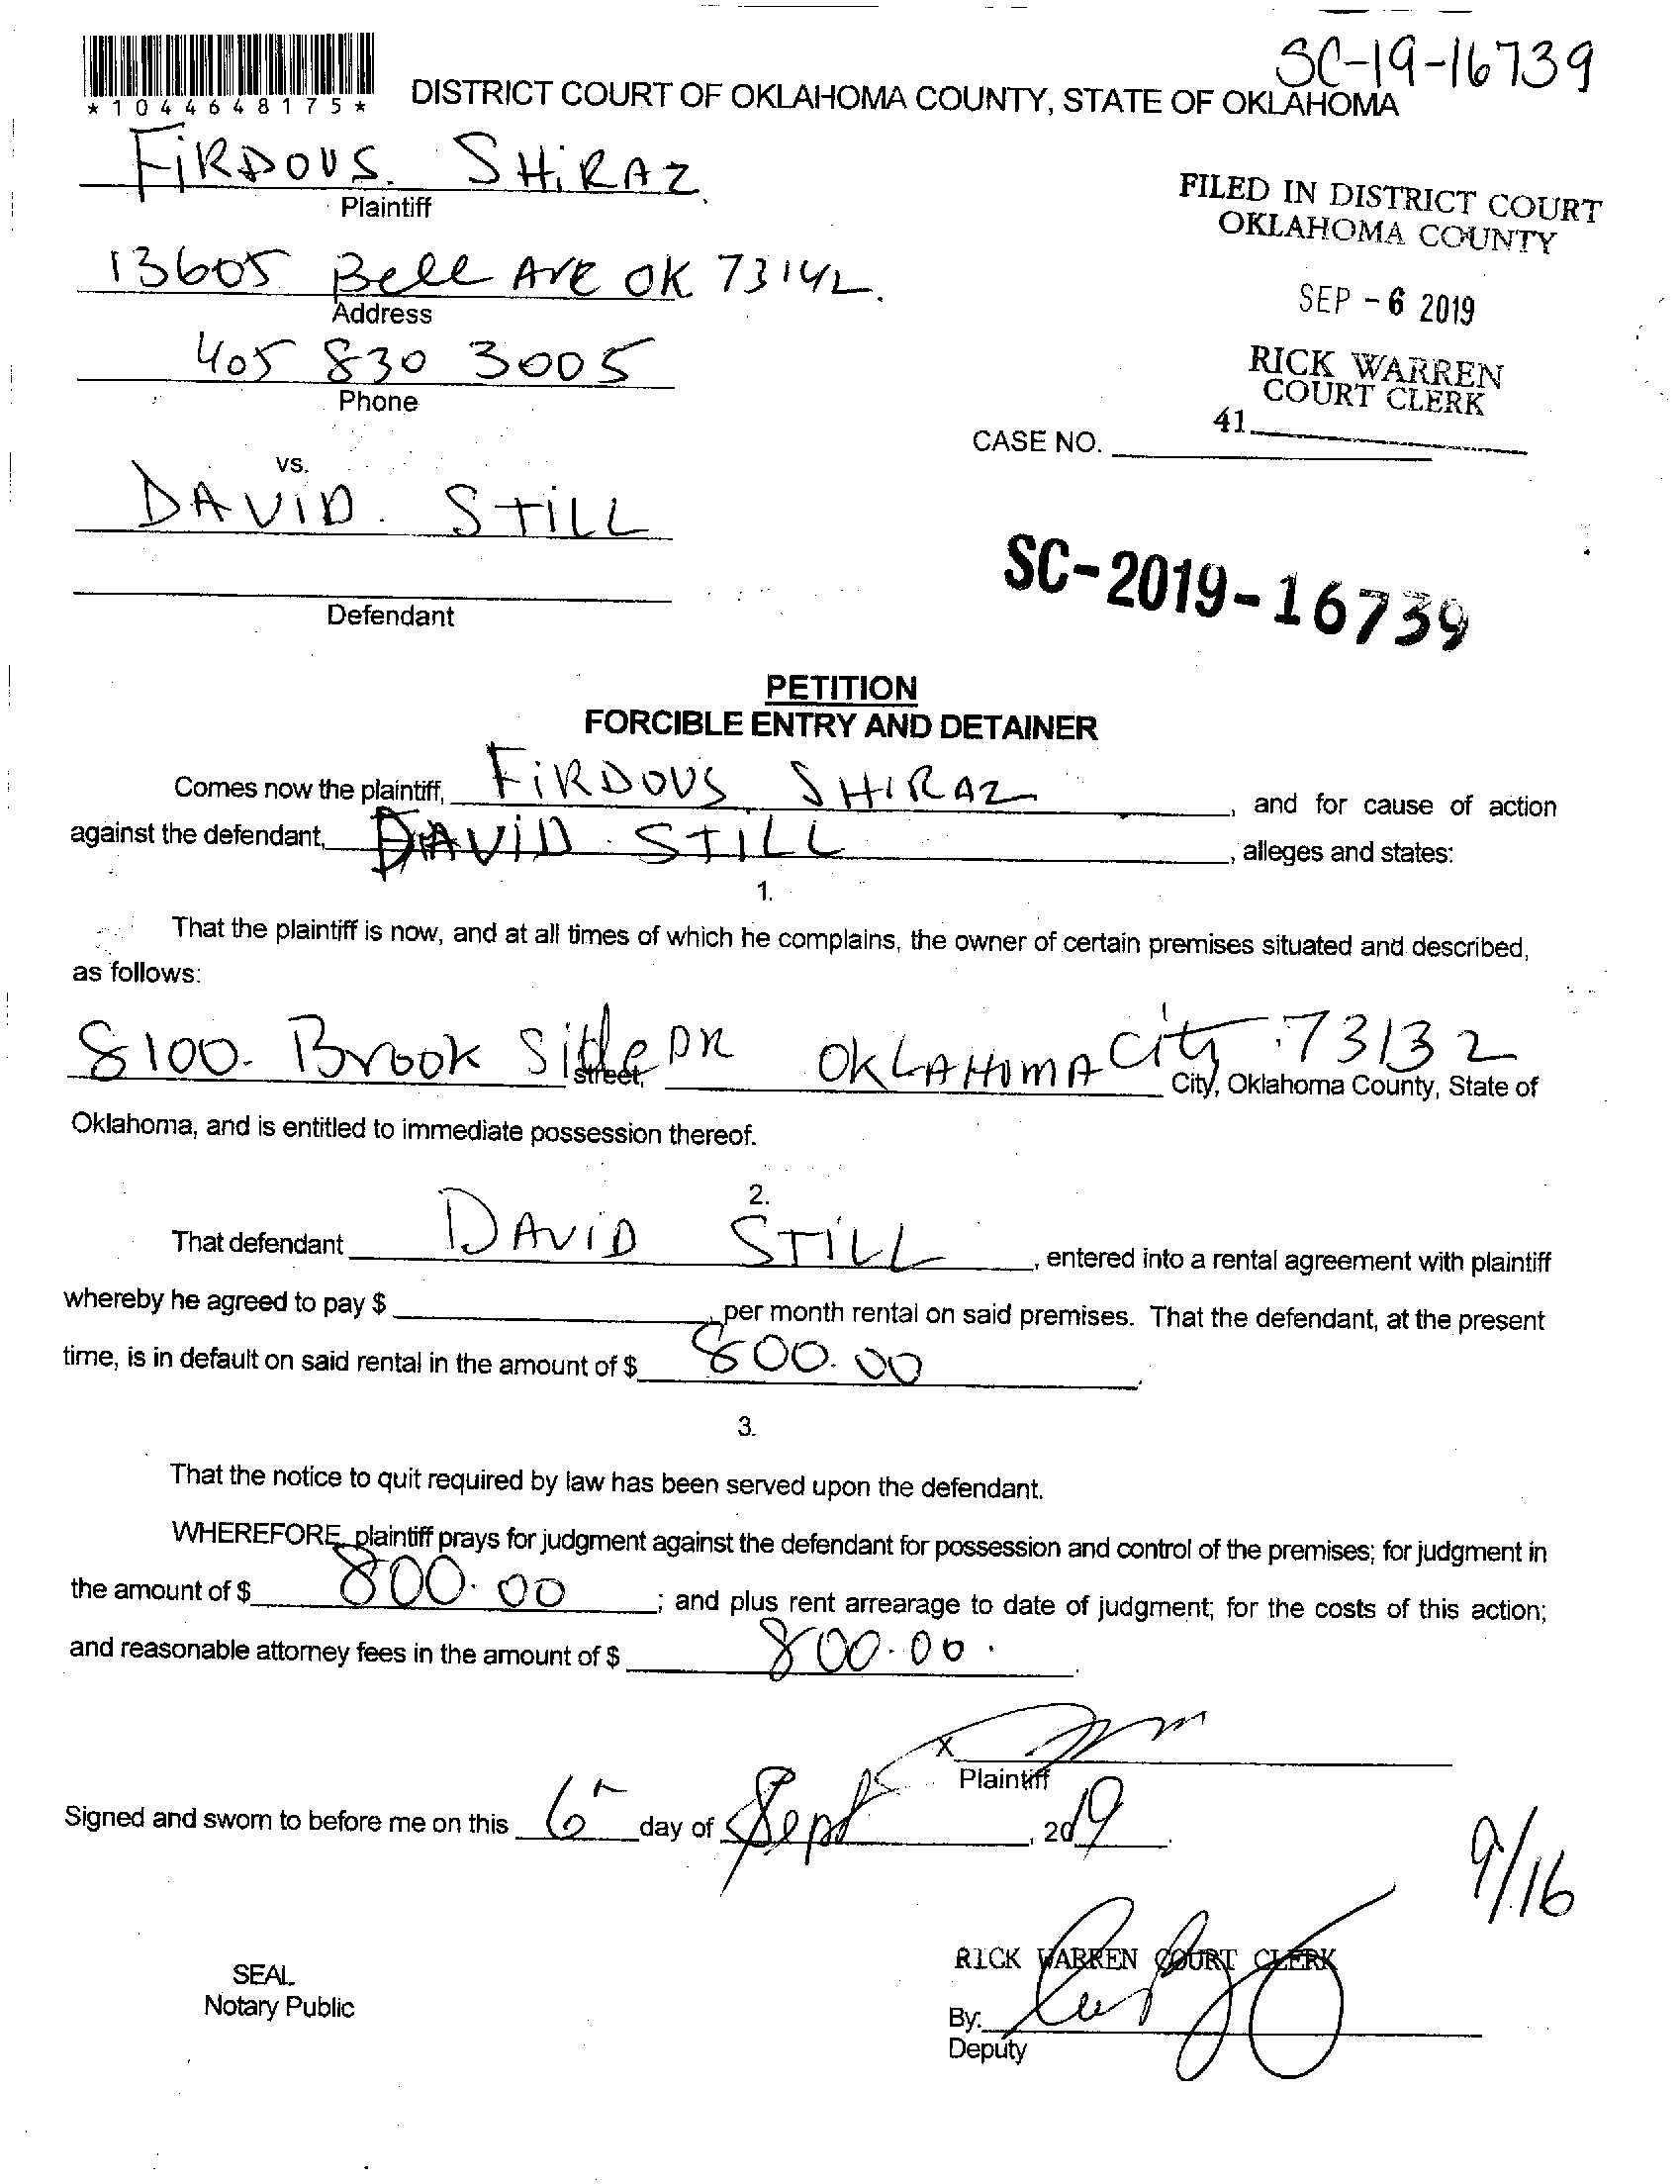 SC-19-16739
*1044648175*
DISTRICT COURT OF OKLAHOMA COUNTY, STATE OF OKLAHOMA
FiRDOUS. SHiRAZ.
Plaintiff
FILED IN DISTRICT COURT
OKLAHOMA COUNTY
13605 Bell Ave OK 73142.
Address
SEP - 6 2019
405 830 3005
Phone
RICK WARREN
COURT CLERK
41
CASE NO.
vs.
DAVID. STiLL
SC-2019-16739
Defendant
PETITION
FORCIBLE ENTRY AND DETAINER
Comes now the plaintiff, FiRDOUS SHIRAZ, and for cause of action
against the defendant, DAViD STILL, alleges and states:
1.
That the plaintiff is now, and at all times of which he complains, the owner of certain premises situated and described,
as follows:
8100. Brook Side DR OKLAHOMA City 73132
street, City, Oklahoma County, State of
Oklahoma, and is entitled to immediate possession thereof.
2.
That defendant DAViD STiLL, entered into a rental agreement with plaintiff
whereby he agreed to pay $ , per month rental on said premises. That the defendant, at the present
time, is in default on said rental in the amount of $ 800.00.
3.
That the notice to quit required by law has been served upon the defendant.
WHEREFORE, plaintiff prays for judgment against the defendant for possession and control of the premises; for judgment in
the amount of $ 800.00; and plus rent arrearage to date of judgment; for the costs of this action;
and reasonable attorney fees in the amount of $ 800.00.
X
Plaintiff
Signed and sworn to before me on this 6th day of Sept, 2019.
9/16
RICK WARREN COURT CLERK
SEAL
Notary Public
By:
Deputy